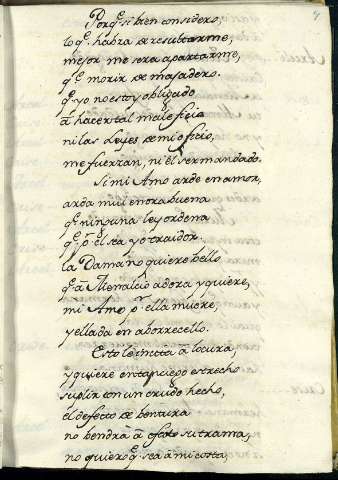 Porq̃. si bien considero,
loq̃. habra de resultarme,
mejor me sera apartarme,
q̃. morir de majadero.
q̃. yo no estoy obligado
â hacer tal maleficio
ni las Leyes de mi oficio,
me fuerzan, ni el ser mandado.
Si mi Amo arde en amor,
arda mui enorabuena
q̃. ninguna ley ordena
q̃. p.r el sea yo traidor.
la Dama no quiere hello
q̃. â Menalcio adora y quiere,
mi Amo p.r ella muere,
y ella da en aborrecello.
Esto le incita â locura,
y quiere en tan ciego estrecho
suplir con un crudo hecho,
el defecto de bentura
no bendrà â efeto su trama,
no quiero q̃. sea â mi costa,